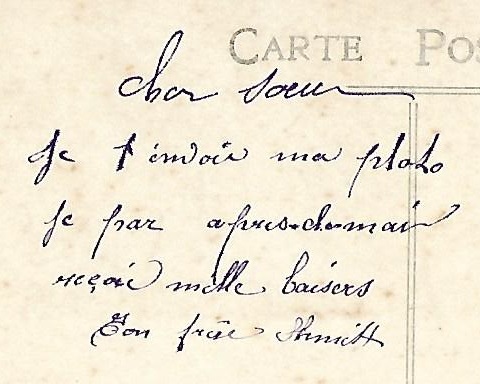 CARTE POS
cher sœur
Je t'envoie ma photo
je par apres-demain
reçoie mille baisers
Ton frère